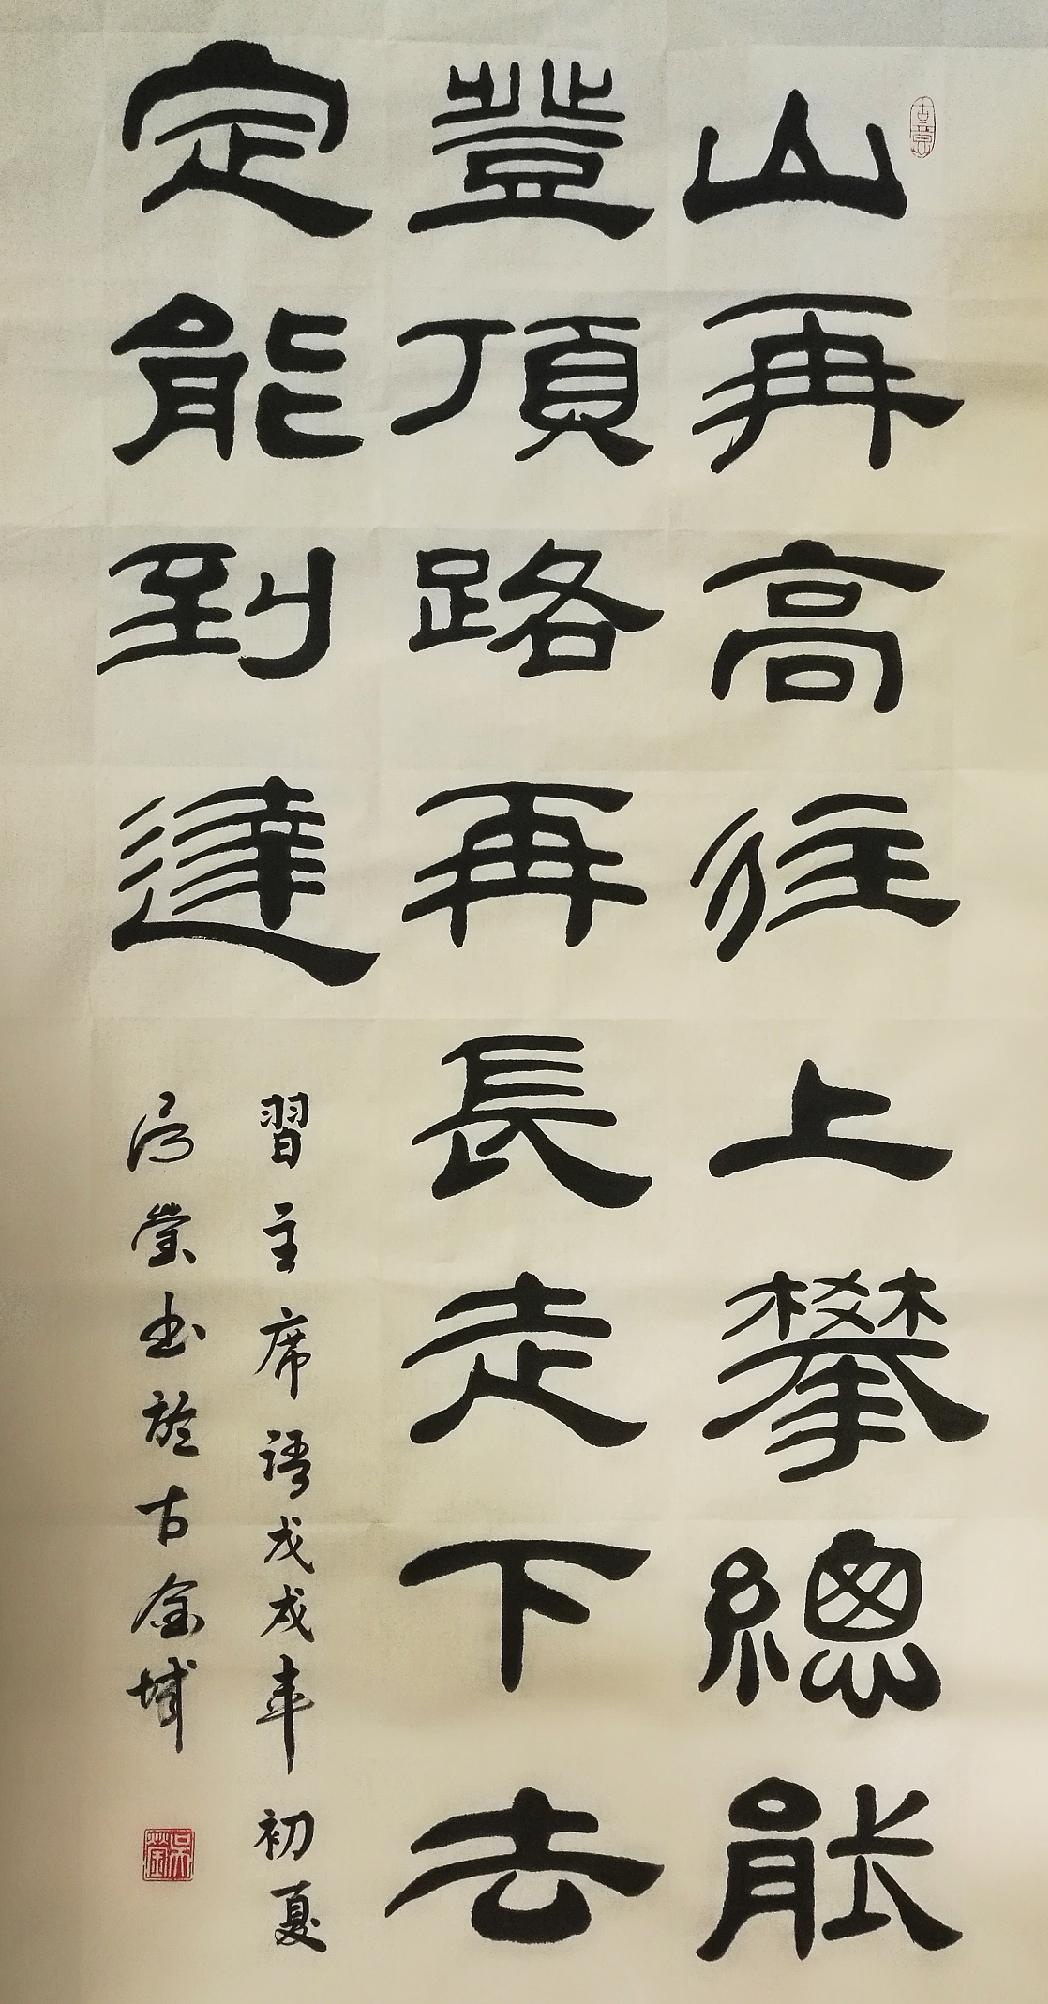 山再高往上攀總能
登頂路再長走下去
定能到達
習主席語戊戌年初夏
瑩书於古金城